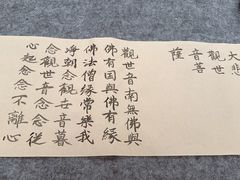 大悲
觀世
音菩
薩
觀世音南無佛與
佛有因與佛有緣
佛法僧緣常樂我
淨朝念觀世音暮
念觀世音念念從
心起念念不離心